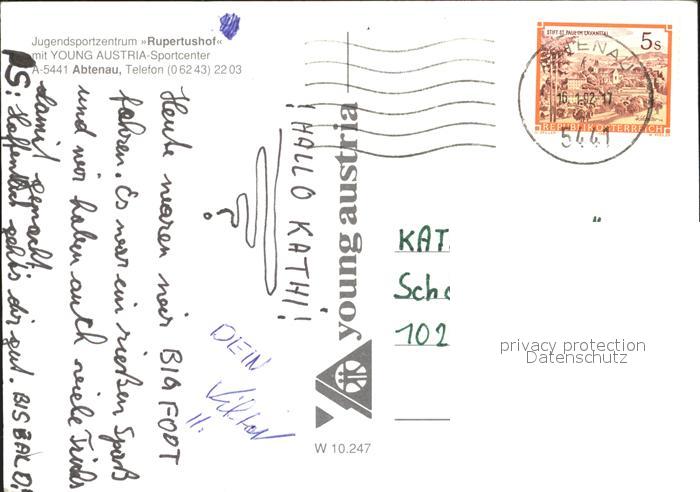 Jugendsportzentrum »Rupertushof«
mit YOUNG AUSTRIA-Sportcenter
A-5441 Abtenau, Telefon (0 62 43) 22 03
! HALLO KATHI !
Heute waren wir BIG FOOT
fahren. Es war ein rießen Spaß
und wir haben auch viele Tricks
damit gemacht.
PS: Hoffentlich geht's dir gut. BIS BALD!
DEIN
young austria
W 10.247
STIFT ST. PAUL IM LAVANTTAL
5 S
REPUBLIK ÖSTERREICH
ABTENAU
5441
KAT
Sch
102
privacy protection
Datenschutz